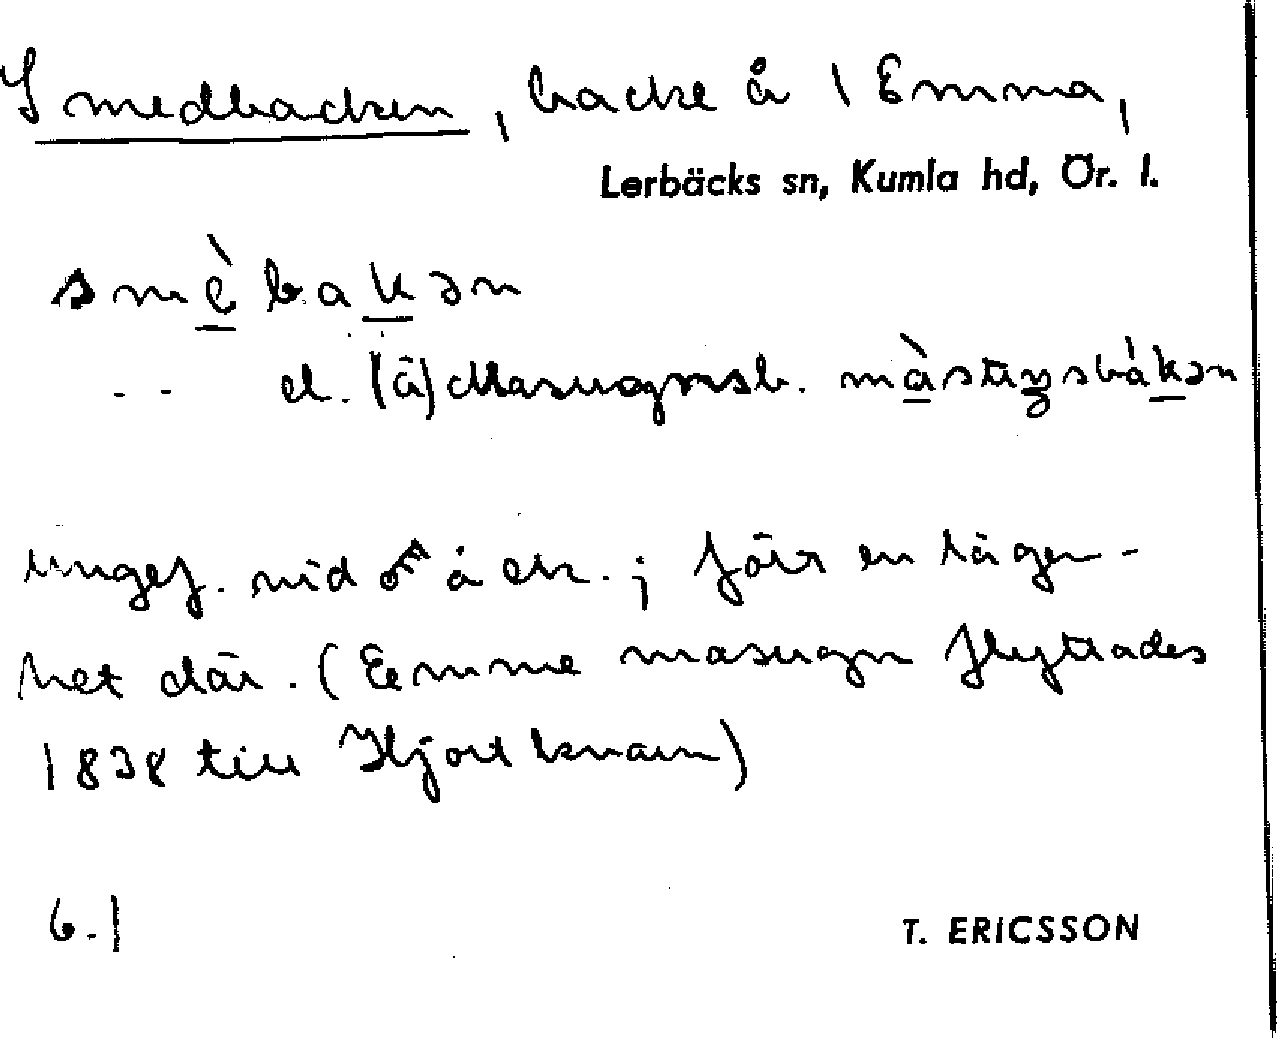 Smedbacken, backe å 1 Emma,
Lerbäcks sn, Kumla hd, Ör. l.
smèbakən
- - el. (ä) Masugnsb. màstugsbákən
ungef. vid å ek. ; förr en lägen-
het där. (Emme masugn flyttades
1838 till Hjortkvarn)
6.1
T. ERICSSON